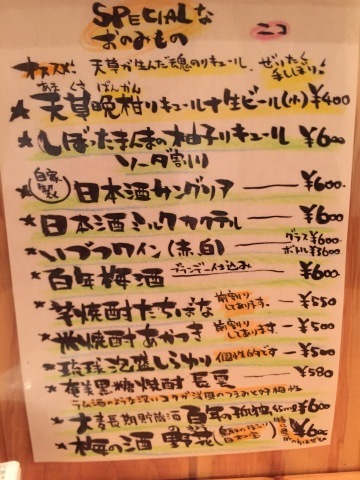 SPECIALな
おのみもの
ニコ
オススメ! 天草が生んだ魂のリキュール ぜいたく手しぼり!
あまくさ ばんかん
★天草晩柑リキュール+生ビール(小) ¥400
★しぼったまんまの柚子リキュール ¥600
ソーダ割り
★(自家製)日本酒サングリア ― ¥600
★日本酒ミルクカクテル ― ¥600
★いづつワイン(赤、白) ― グラス¥600 ボトル¥3600
★百年梅酒 ブランデー仕込み ¥600
★芋焼酎たちばな 前割りしてあります。 ― ¥550
★焼酎あかつき 前割りしてあります ― ¥500
★琉球泡盛しらゆり 個性的です ― ¥500
★奄美黒糖焼酎 長雲 ― ¥580
ラム酒のような深いコクが
★大麦長期貯蔵酒 百年の孤独 45ml ¥600
★梅の酒 野花 ¥600